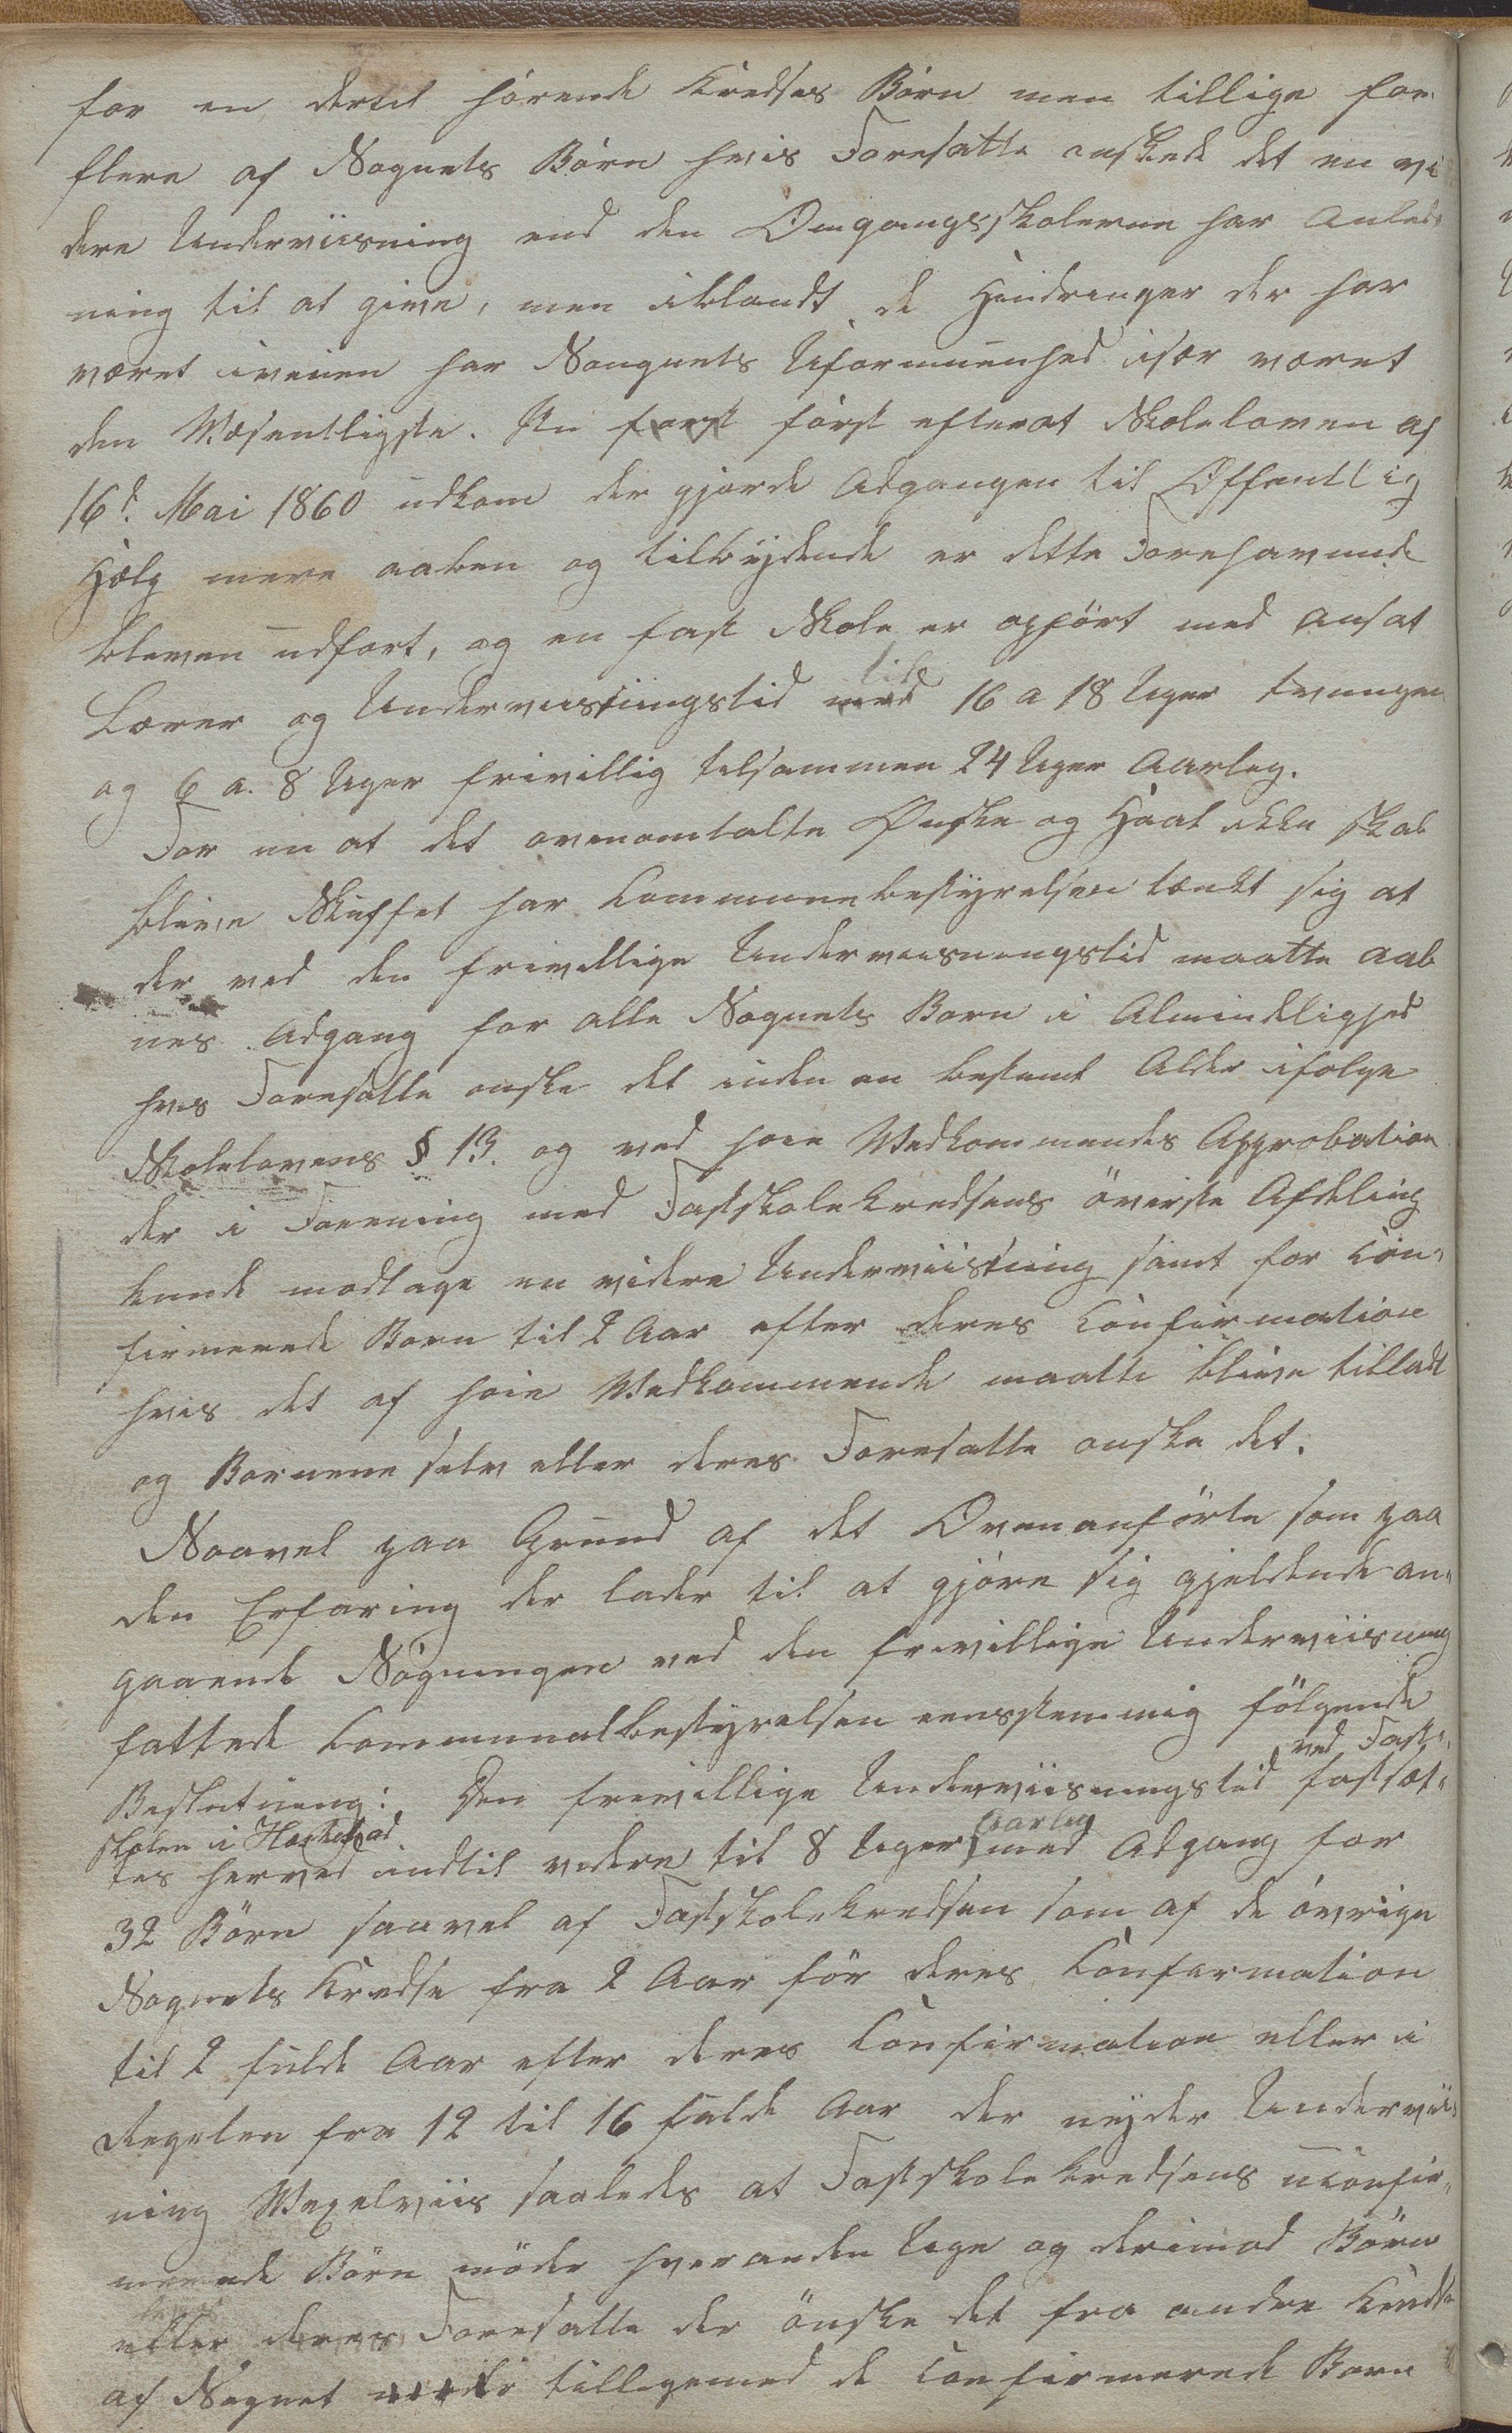 for en dertil hörende Kredses Börn men tillige for
flere af Sognets Börn hvis Foresatte ønskede det en vi
dere Underviisning end den Omgangsskolerne har Anled
ning til at give, men iblandt de Hindringer der har
været iveien har Sougnets Uformuenhed især været
den Væsentligste. Nu først først efterat Skoleloven af
16d. Mai 1860 udkom der gjorde Adgangen til Offentlig
Hjælp mere aaben og tilbydende er dette Forehavende
bleven udført, og en fast Skole er opført med ansat
Lærer og Underviisningstid til 16 a 18 Uger tvungen
og 6 a. 8 Uger frivillig tilsammen 24 Uger Aarlig.
For nu at det ovenomtalte Ønske og Haab ikke skal
blive Skuffet har Communebestyrelsen tænkt sig at
der ved den frivillige Underviisningstid maatte aab
nes Adgang for alle Sognets Børn i Almindelighed
hvis Foresatte ønske det inden en bestemt Alder ifølge
Skolelovens § 13. og ved høie Vedkommendes Approbation
der i Forening med Fastskolekredsens överste Afdeling
kunde modtage en videre Underviisning samt for Con„
firmerede Børn til 2 Aar efter deres Confirmation
hvis det af høie Vedkommende maatte blive tilladt
og Børnene selv eller deres Foresatte ønske det.
Saavel paa Grund af det Ovenanförte som paa
den Erfaring der lader til at gjöre sig gjeldende an„
gaaende Sögningen ved den frivillige Underviisning
fattede Communalbestyrelsen eensstemmig fölgende
ved Fast„
Beslutning: Den frivillige Underviisningstid fastsæt„
skolen i Haskestad Aarlig
tes herved indtil videre til 8 Uger med Adgang for
32 Börn saavel af Fastskolekredsen som af de övrige
Sognets Kredse fra 2 Aar för deres Confirmation
til 2 fulde Aar efter deres Confirmation eller i
Regelen fra 12 til 16 fulde Aar der nyder Underviis
ning Vexelviis saaledes at Fastskolekredsens uconfir„
merede Börn möder hveranden Uge og derimod Börn
eller deres Foresatte der önske det fra andre Kredse
af Sognet möder tilligemed de Confirmerede Børn